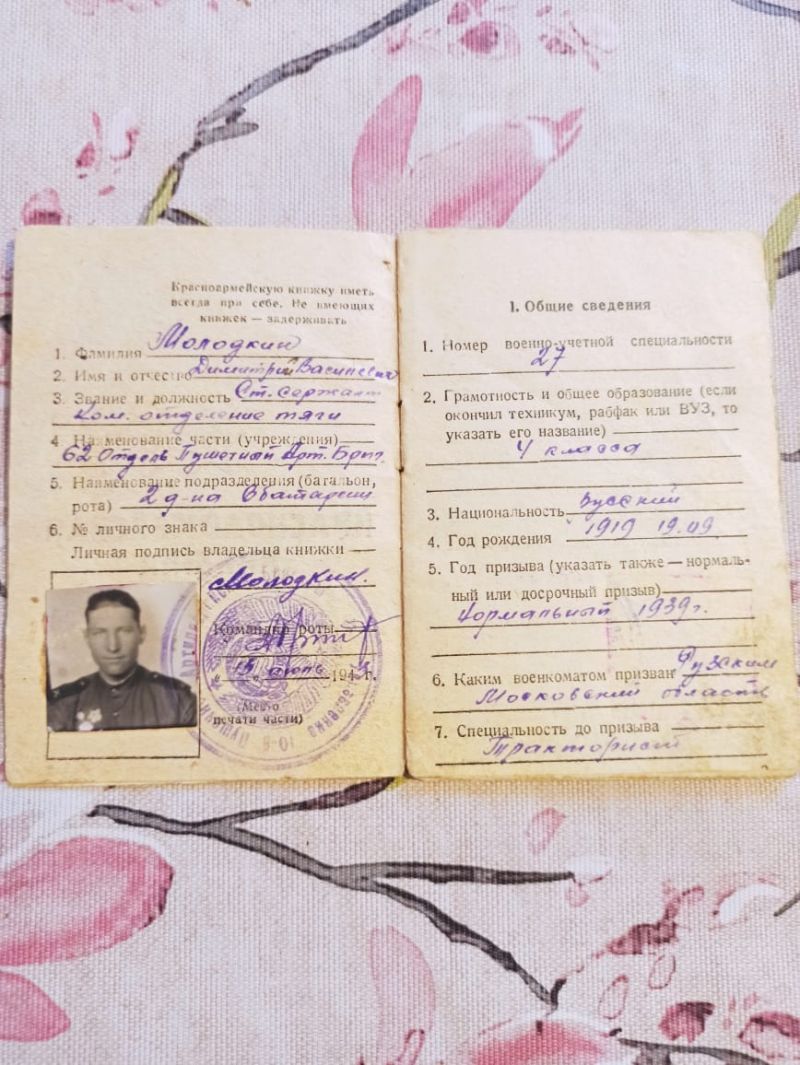 Красноармейскую книжку иметь
всегда при себе. Не имеющих
книжек — задерживать
1. Фамилия Молодкин
2. Имя и отчество Димитрий Василевич
3. Звание и должность Ст. сержант
Ком. отделение тяги
4 Наименование части (учреждения)
62 Отдель Пушечный Арт. Бриг.
5. Наименование подразделения (батальон,
рота) 2 д-на батареи
6. № личного знака
Личная подпись владельца книжки
Молодкин.
Командир роты
"15 июль 1943 г.
(Место
печати части)
1. Общие сведения
1. Номер военно-учетной специальности
27
2. Грамотность и общее образование (если
окончил техникум, рабфак или ВУЗ, то
указать его название)
4 класса
3. Национальность Русский
4. Год рождения 1919 19.09
5. Год призыва (указать также — нормаль-
ный или досрочный призыв)
Нормальный 1939 г.
6. Каким военкоматом призван Рузским
Московский область
7. Специальность до призыва
Тракторист